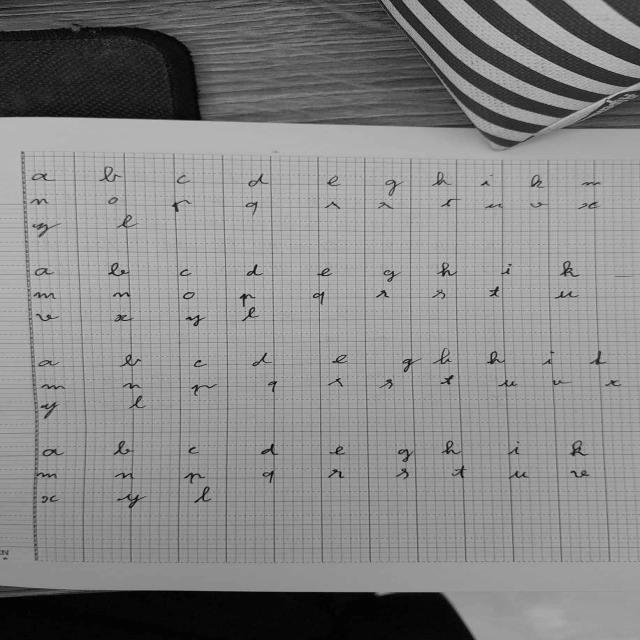 a b c d e g h i k m
n o p q r s t u v x
y l
a b c d e g h i k
m n o p q r s t u
v x y l
a b c d e g h k i t
m n p q r s t u v x
y l
a b c d e g h i k
m n p q r s t u v
x y l